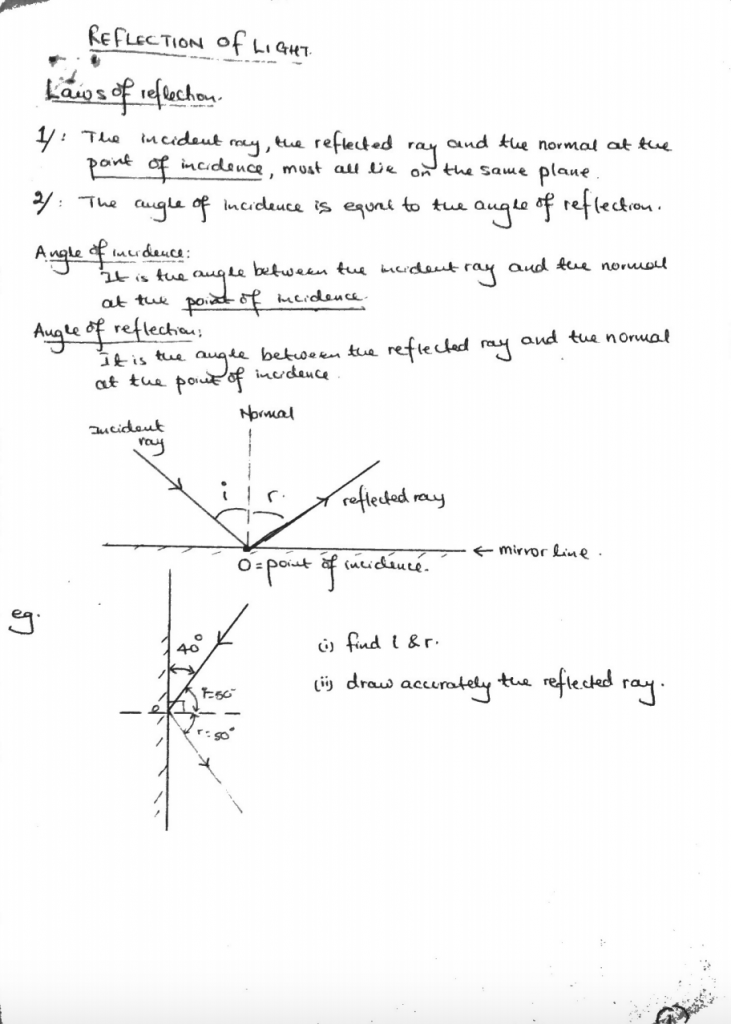 REFLECTION Of LIGHT.
Laws of reflection.
1/: The incident ray, the reflected ray and the normal at the
point of incidence, must all lie on the same plane.
2/: The angle of incidence is equal to the angle of reflection.
Angle of incidence:
It is the angle between the incident ray and the normal
at the point of incidence.
Angle of reflection:
It is the angle between the reflected ray and the normal
at the point of incidence.
Normal
Incident
ray
i r.
reflected ray
← mirror line.
O = point of incidence.
eg.
40°
(i) find i & r.
(ii) draw accurately the reflected ray.
i=50°
o
r=50°